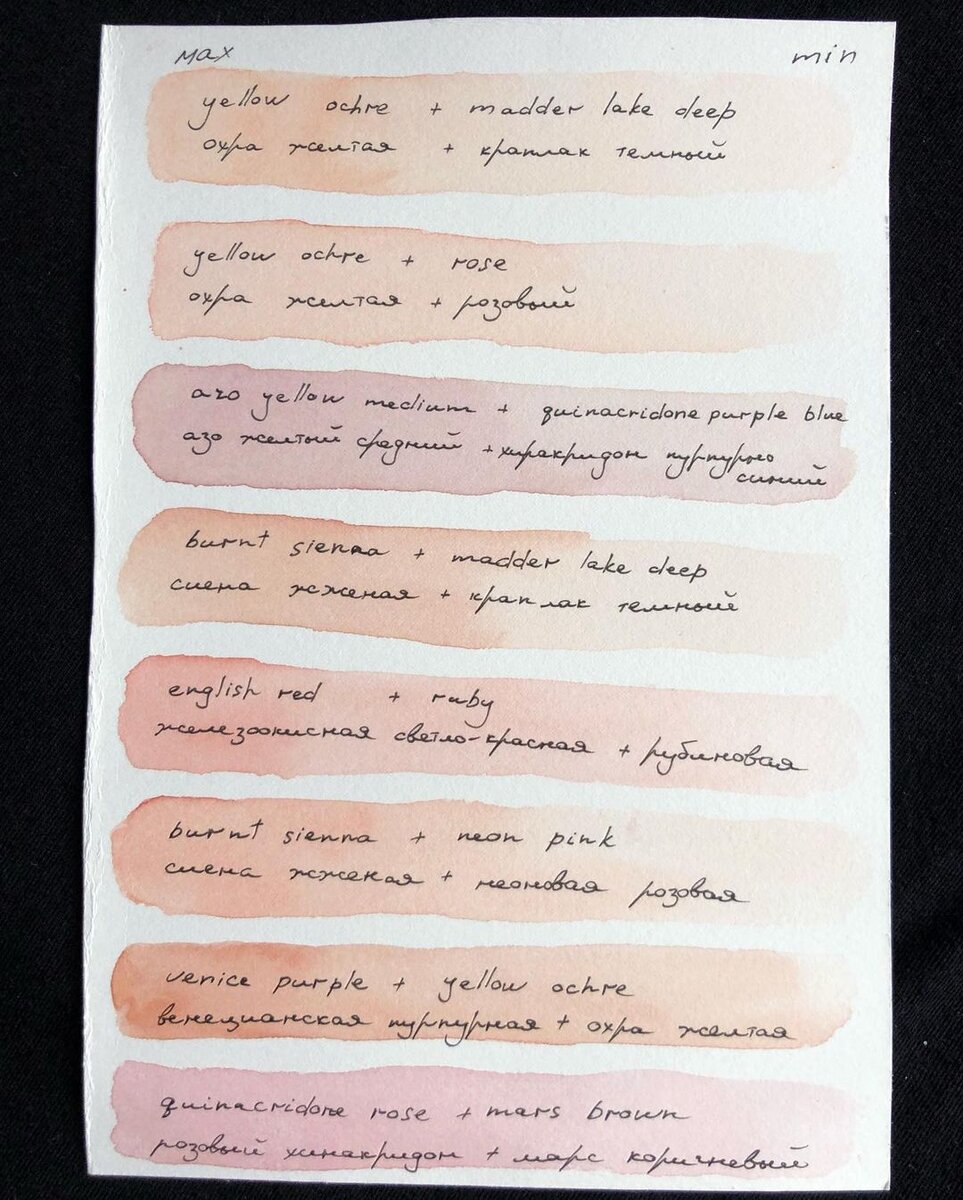 max min
yellow ochre + madder lake deep
охра желтая + краплак темный
yellow ochre + rose
охра желтая + розовый
azo yellow medium + quinacridone purple blue
азо желтый средний + хиракридон пурпурно
синий
burnt sienna + madder lake deep
сиена жженая + краплак темный
english red + ruby
железоокисная светло-красная + рубиновая
burnt sienna + neon pink
сиена жженая + неоновая розовая
venice purple + yellow ochre
венецианская пурпурная + охра желтая
quinacridone rose + mars brown
розовый хинакридон + марс коричневый